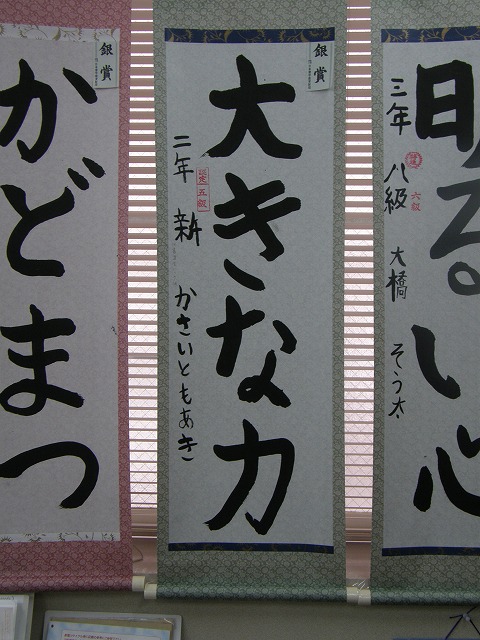 明るい心
三年 八級 大橋 そう太
六級
銀賞
大きな力
二年 新 かさいともあき
認定 五級
銀賞
かどまつ